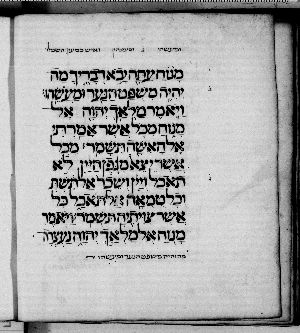 מנוח עתה יבא דבריך מה
יהיה משפט הנער ומעשהו
ויאמר מלאך יהוה אל
מנוח מכל אשר אמרתי
אל האשה תשמר מכל
אשר יצא מגפן היין לא
תאכל ויין ושכר אל תשת
וכל טמאה אל תאכל כל
אשר צויתיה תשמר ויאמר
מנוח אל מלאך יהוה נעצרה
משפט הנער ומעשהו